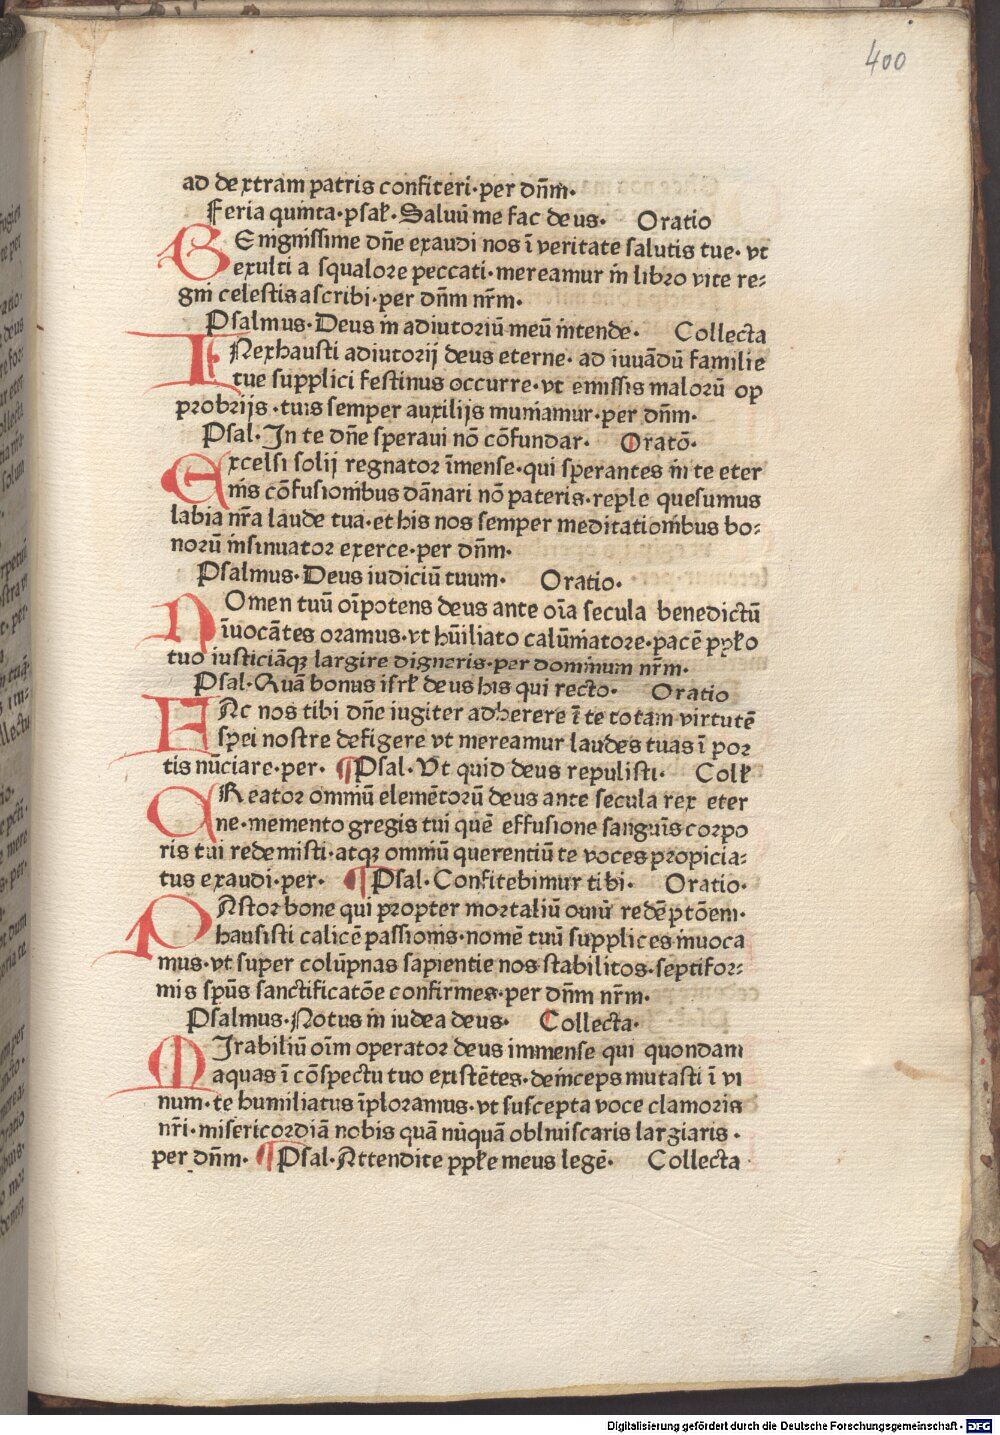 400
ad dextram patris confiteri·per dn̄m·
Feria quinta·psaƚ·Saluū me fac deus· Oratio
BEnignissime dn̄e exaudi nos ī veritate salutis tue·vt
exulti a squalore peccati·mereamur in libro vite re⸗
gni celestis ascribi·per dn̄m nr̄m·
Psalmus·Deus in adiutoriū meū intende· Collecta
INexhausti adiutorij deus eterne·ad iuuādū familie
tue supplici festinus occurre·vt emissis malorū op
probrijs·tuis semper auxilijs muniamur·per dn̄m·
Psal·In te dn̄e speraui nō cōfundar· Oratō·
Excelsi solij regnator īmense·qui sperantes in te eter
nis cōfusionibus dānari nō pateris·reple quesumus
labia nr̄a laude tua·et his nos semper meditationibus bo⸗
norū insinuator exerce·per dn̄m·
Psalmus·Deus iudiciū tuum· Oratio·
NOmen tuū oīpotens deus ante oīa secula benedictū
īuocātes oramus·vt hūiliato calūniatore·pacē ppƚo
tuo iusticiāqꝫ largire digneris·per dominum nr̄m·
Psal·Quā bonus isrƚ deus his qui recto· Oratio
FAc nos tibi dn̄e iugiter adherere ī te totam virtutē
spei nostre defigere vt mereamur laudes tuas ī por
tis nūciare·per· ¶Psal·Vt quid deus repulisti· Colƚ
CReator omniū elemētorū deus ante secula rex eter
ne·memento gregis tui quē effusione sanguis corpo
ris tui redemisti·atqꝫ omniū querentiū te voces propicia⸗
tus exaudi·per· ¶Psal·Confitebimur tibi· Oratio·
PAstor bone qui propter mortaliū oniū redēptōem·
hausisti calicē passionis·nomē tuū supplices inuoca
mus·vt super colūpnas sapientie nos stabilitos·septifor⸗
mis spūs sanctificatōe confirmes·per dn̄m nr̄m·
Psalmus·Notus in iudea deus· Collecta·
MIrabiliū oīm operator deus immense qui quondam
aquas ī cōspectu tuo existētes·deinceps mutasti ī vi
num·te humiliatus īploramus·vt suscepta voce clamoris
nr̄i·misericordiā nobis quā nūquā obliuiscaris largiaris·
per dn̄m· ¶Psal·Attendite ppƚe meus legē· Collecta
Digitalisierung gefördert durch die Deutsche Forschungsgemeinschaft - DFG